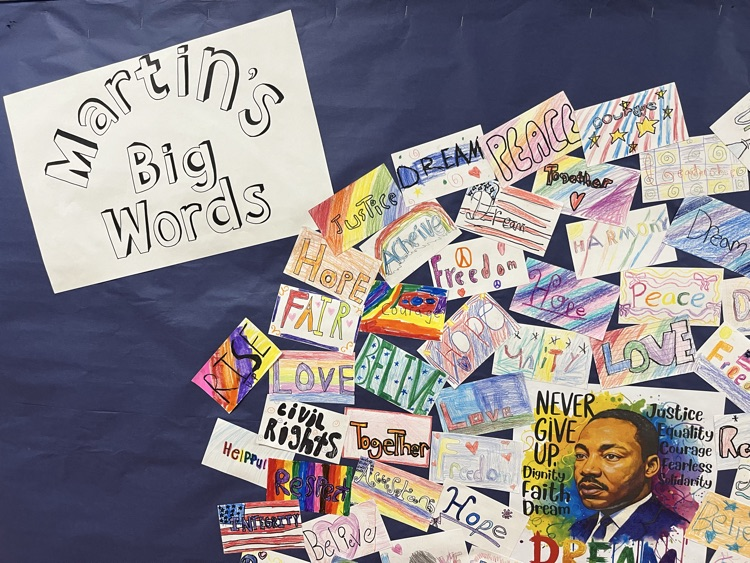 Martin's
Big
Words
PEACE
Courage
DREAM
Together
JUSTICE
Dream
HARMONY
Dream
Acheive
Freedom!
HOPE
Hope
Peace
FAIR
Courage
Hope
UNITY
LOVE
RISE
LOVE
BELIEVE
Love
CIVIL
RIGHTS
Together
Freedom
Helpful
Respect
Hope
INTEGRITY
Believe
NEVER
GIVE
UP
Dignity
Faith
Dream
Justice
Equality
Courage
Fearless
Solidarity
DREAM